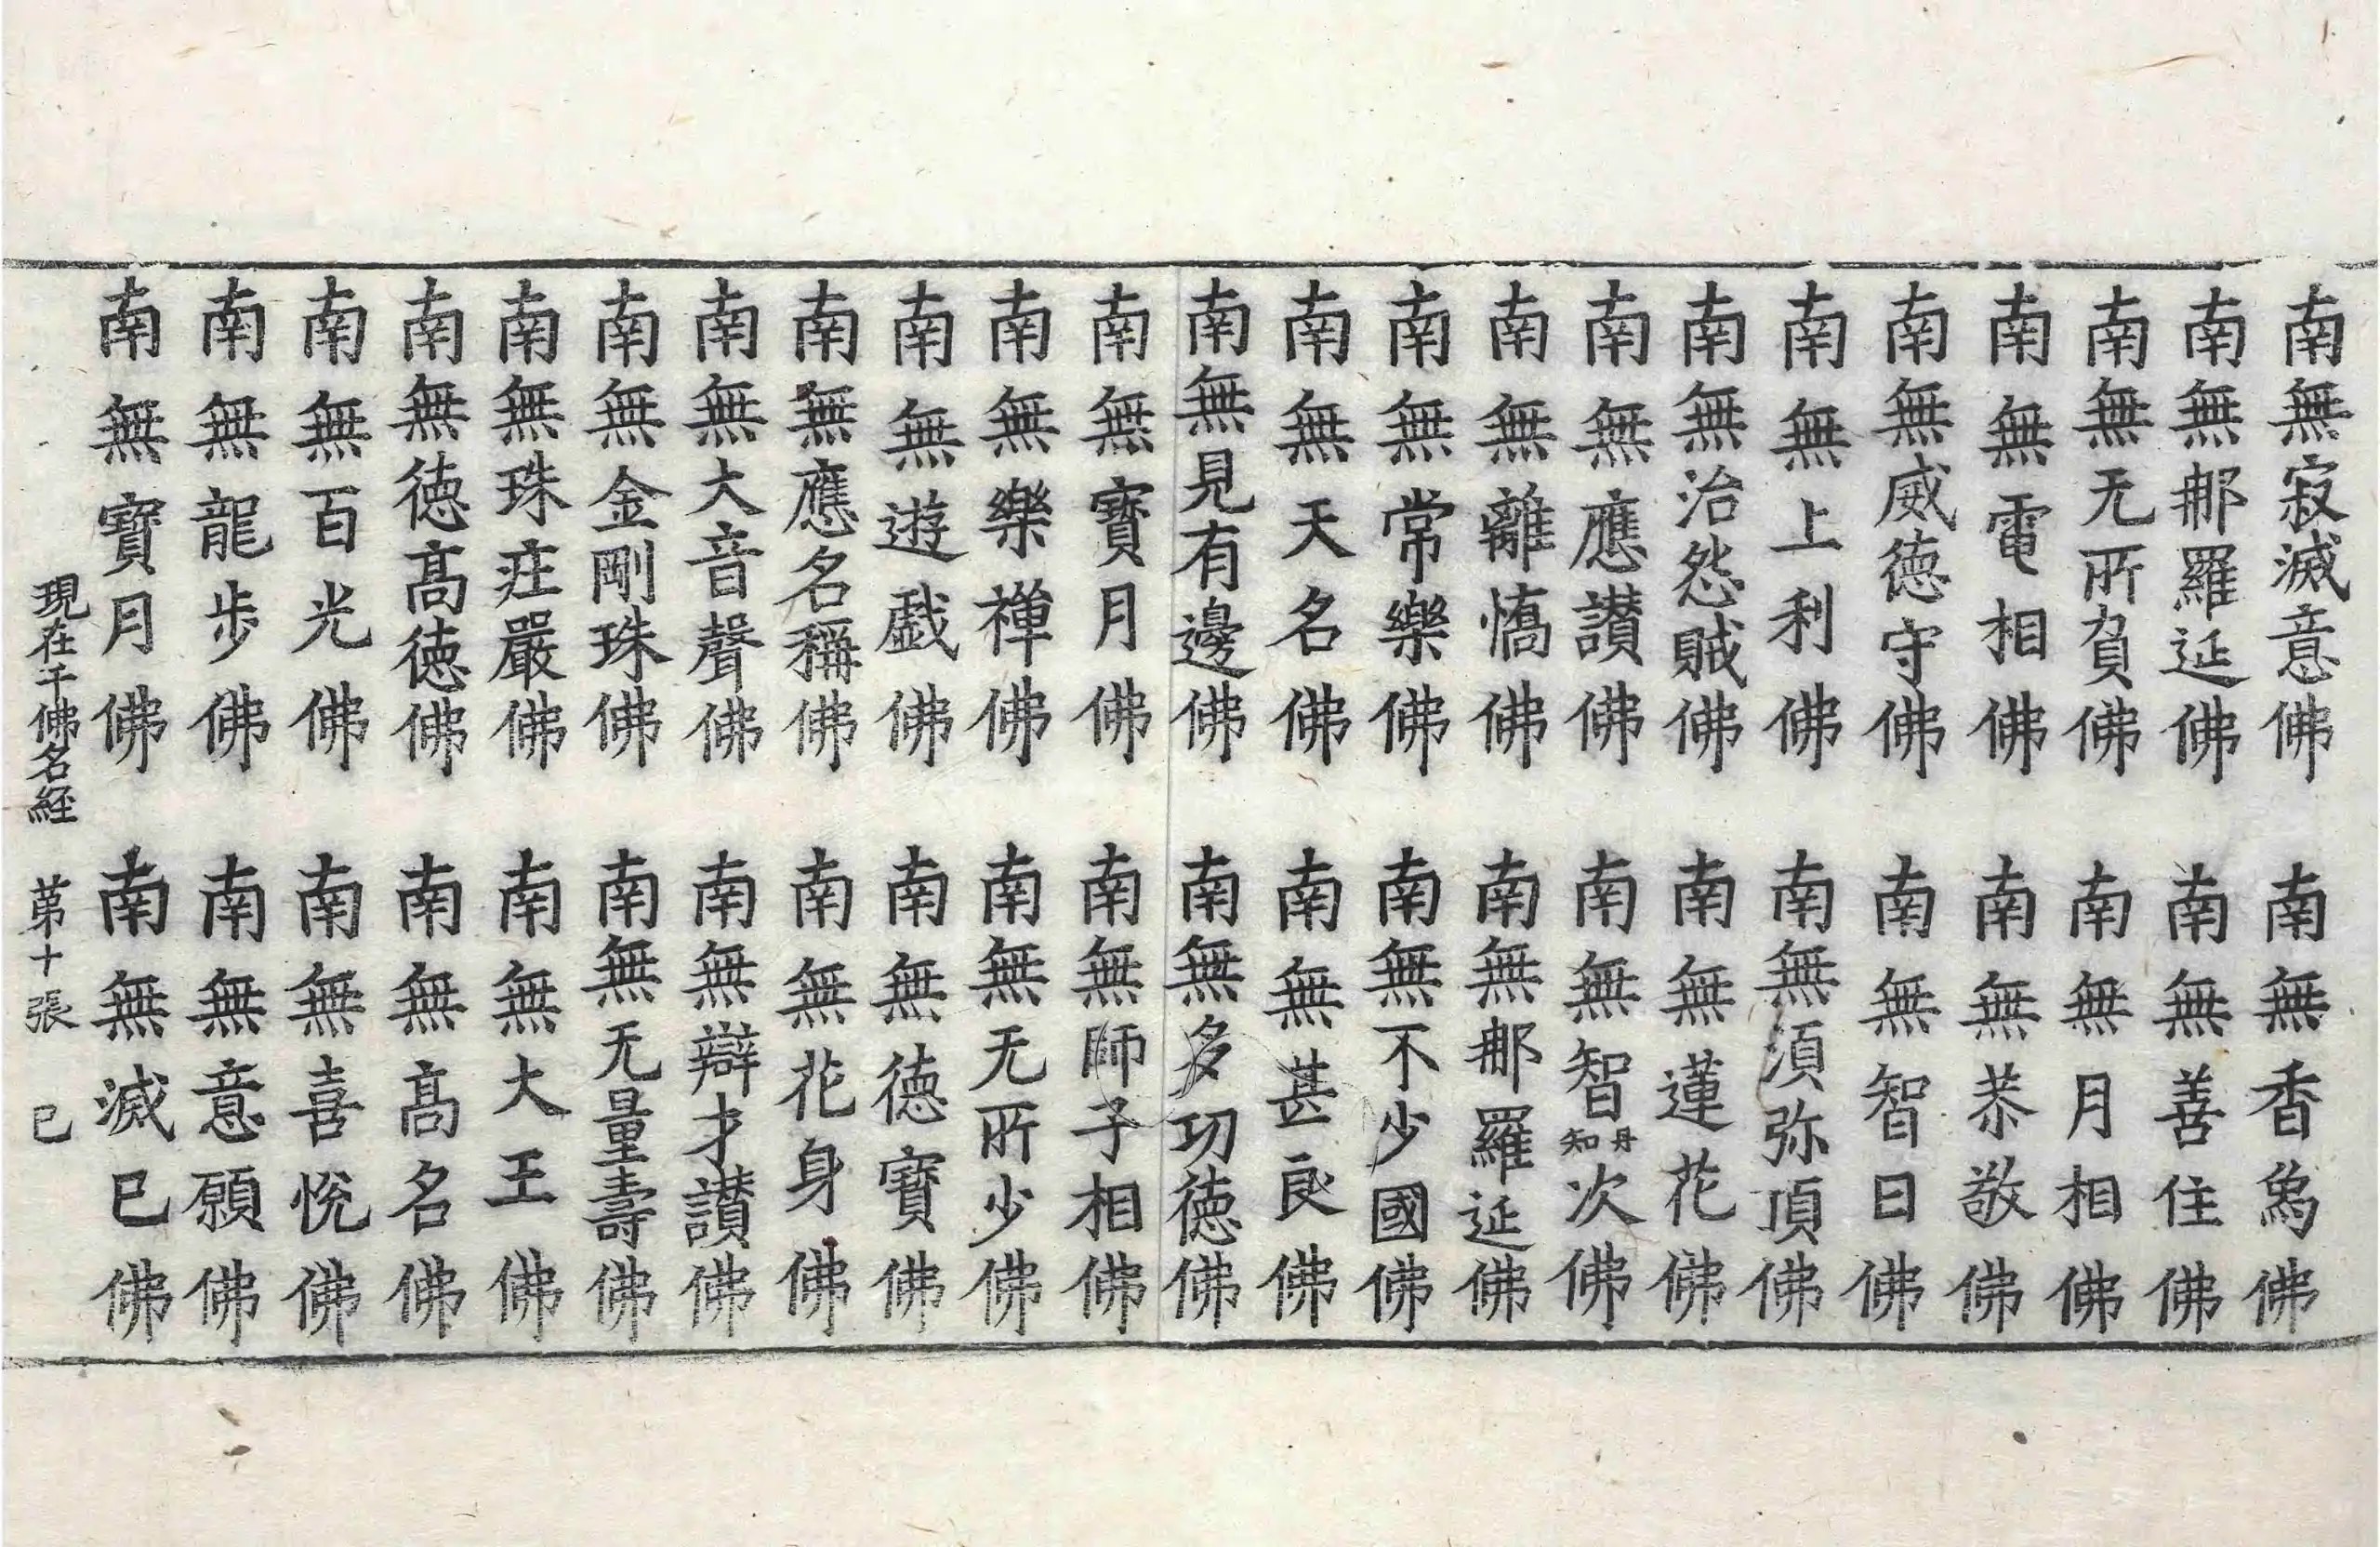 南無寂滅意佛　南無香爲佛
南無那羅延佛　南無善住佛
南無无所負佛　南無月相佛
南無電相佛　南無恭敬佛
南無威德守佛　南無智日佛
南無上利佛　南無須弥頂佛
南無治怨賊佛　南無蓮花佛
南無應讃佛　南無智丹知次佛
南無離憍佛　南無那羅延佛
南無常樂佛　南無不少國佛
南無天名佛　南無甚良佛
南無見有邊佛　南無多功德佛
南無寶月佛　南無師子相佛
南無樂禪佛　南無无所少佛
南無遊戲佛　南無德寶佛
南無應名稱佛　南無花身佛
南無大音聲佛　南無辯才讃佛
南無金剛珠佛　南無无量壽佛
南無珠莊嚴佛　南無大王佛
南無德髙德佛　南無髙名佛
南無百光佛　南無喜悅佛
南無龍步佛　南無意願佛
南無寶月佛　南無滅已佛
現在千佛名經　第十張　已